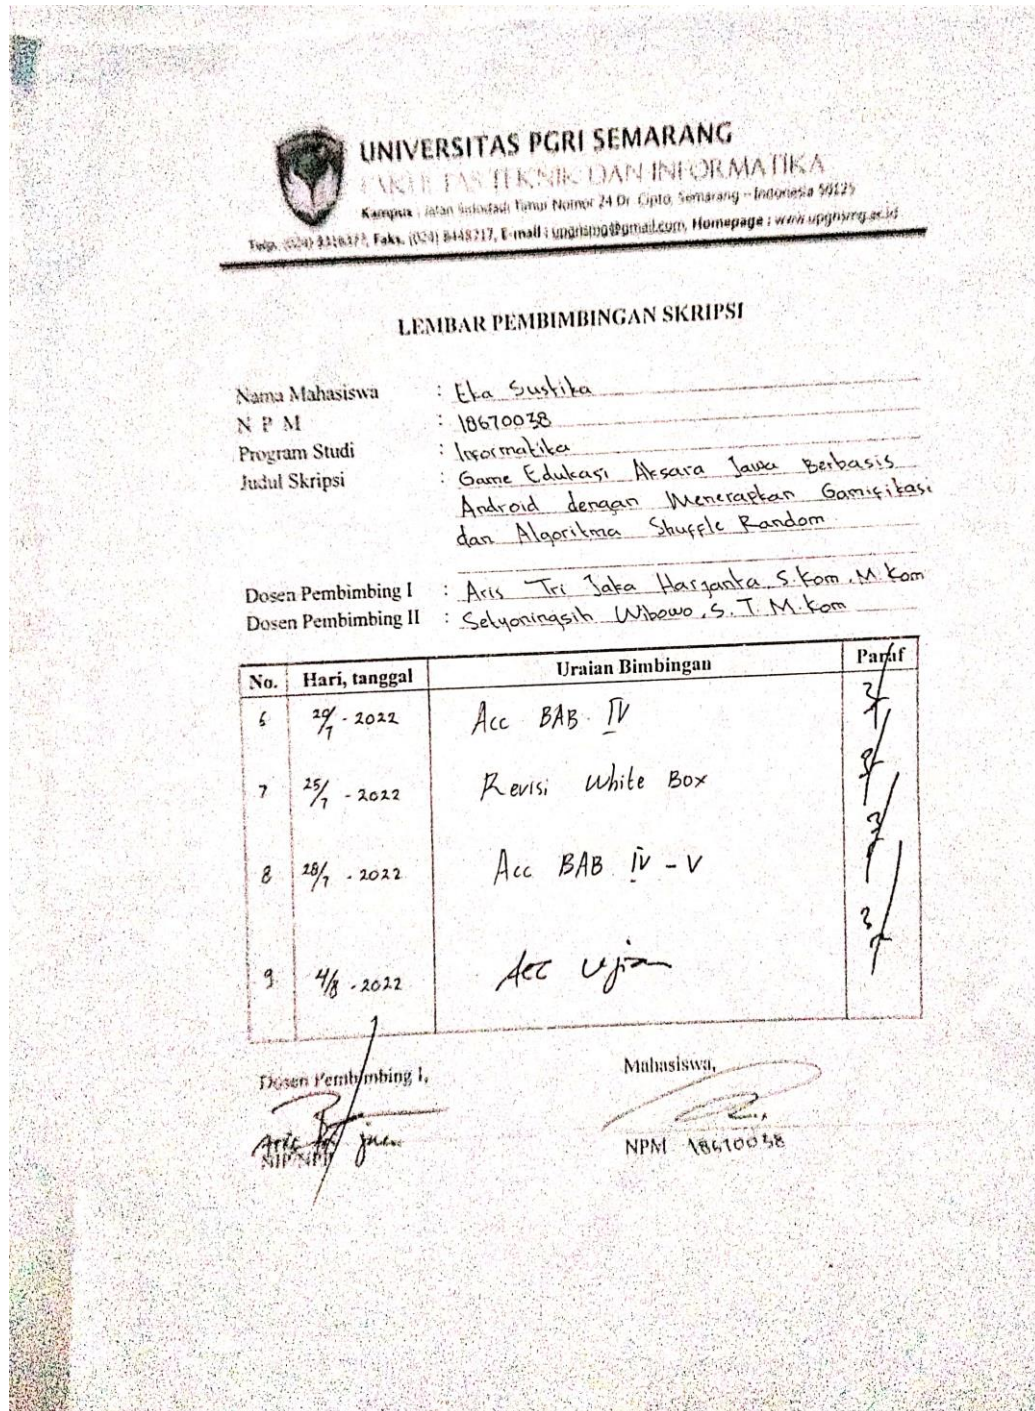 UNIVERSITAS PGRI SEMARANG
FAKULTAS TEKNIK DAN INFORMATIKA
Kampus : Jalan Sidodadi Timur Nomor 24 Dr. Cipto, Semarang – Indonesia 50125
Faks. (024) 8448217, E-mail : upgrismg@gmail.com, Homepage : www.upgrismg.ac.id
LEMBAR PEMBIMBINGAN SKRIPSI
Nama Mahasiswa : Eka Sustika
N P M : 18670038
Program Studi : Informatika
Judul Skripsi : Game Edukasi Aksara Jawa Berbasis
Android dengan Menerapkan Gamifikasi
dan Algoritma Shuffle Random
Dosen Pembimbing I : Aris Tri Jaka Harjanta S.Kom, M.Kom
Dosen Pembimbing II : Setyoningsih Wibowo, S.T. M.Kom
No. Hari, tanggal Uraian Bimbingan Paraf
6 20/7 - 2022 Acc BAB IV
7 25/7 - 2022 Revisi White Box
8 28/7 - 2022 Acc BAB IV - V
9. 4/8 - 2022 Acc Ujian
Dosen Pembimbing I, Mahasiswa,
NIP/NPP NPM 18670038